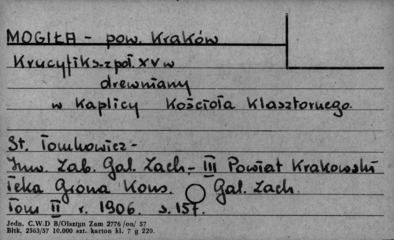 MOGIŁA - pow. Kraków
Krucyfiks z poł. XV w
drewniany
w Kaplicy Kościoła Klasztornego.
St. Tomkowicz -
Inw. Zab. Gal. Zach - III Powiat Krakowski
Teka Grona Kons. Gal. Zach.
Tom II r. 1906. s. 157.
Jedn. C.W.D B/Olsztyn Zam 2776 /on/ 57
Bltk. 2563/57 10.000 szt. karton kl. 7 g 220.